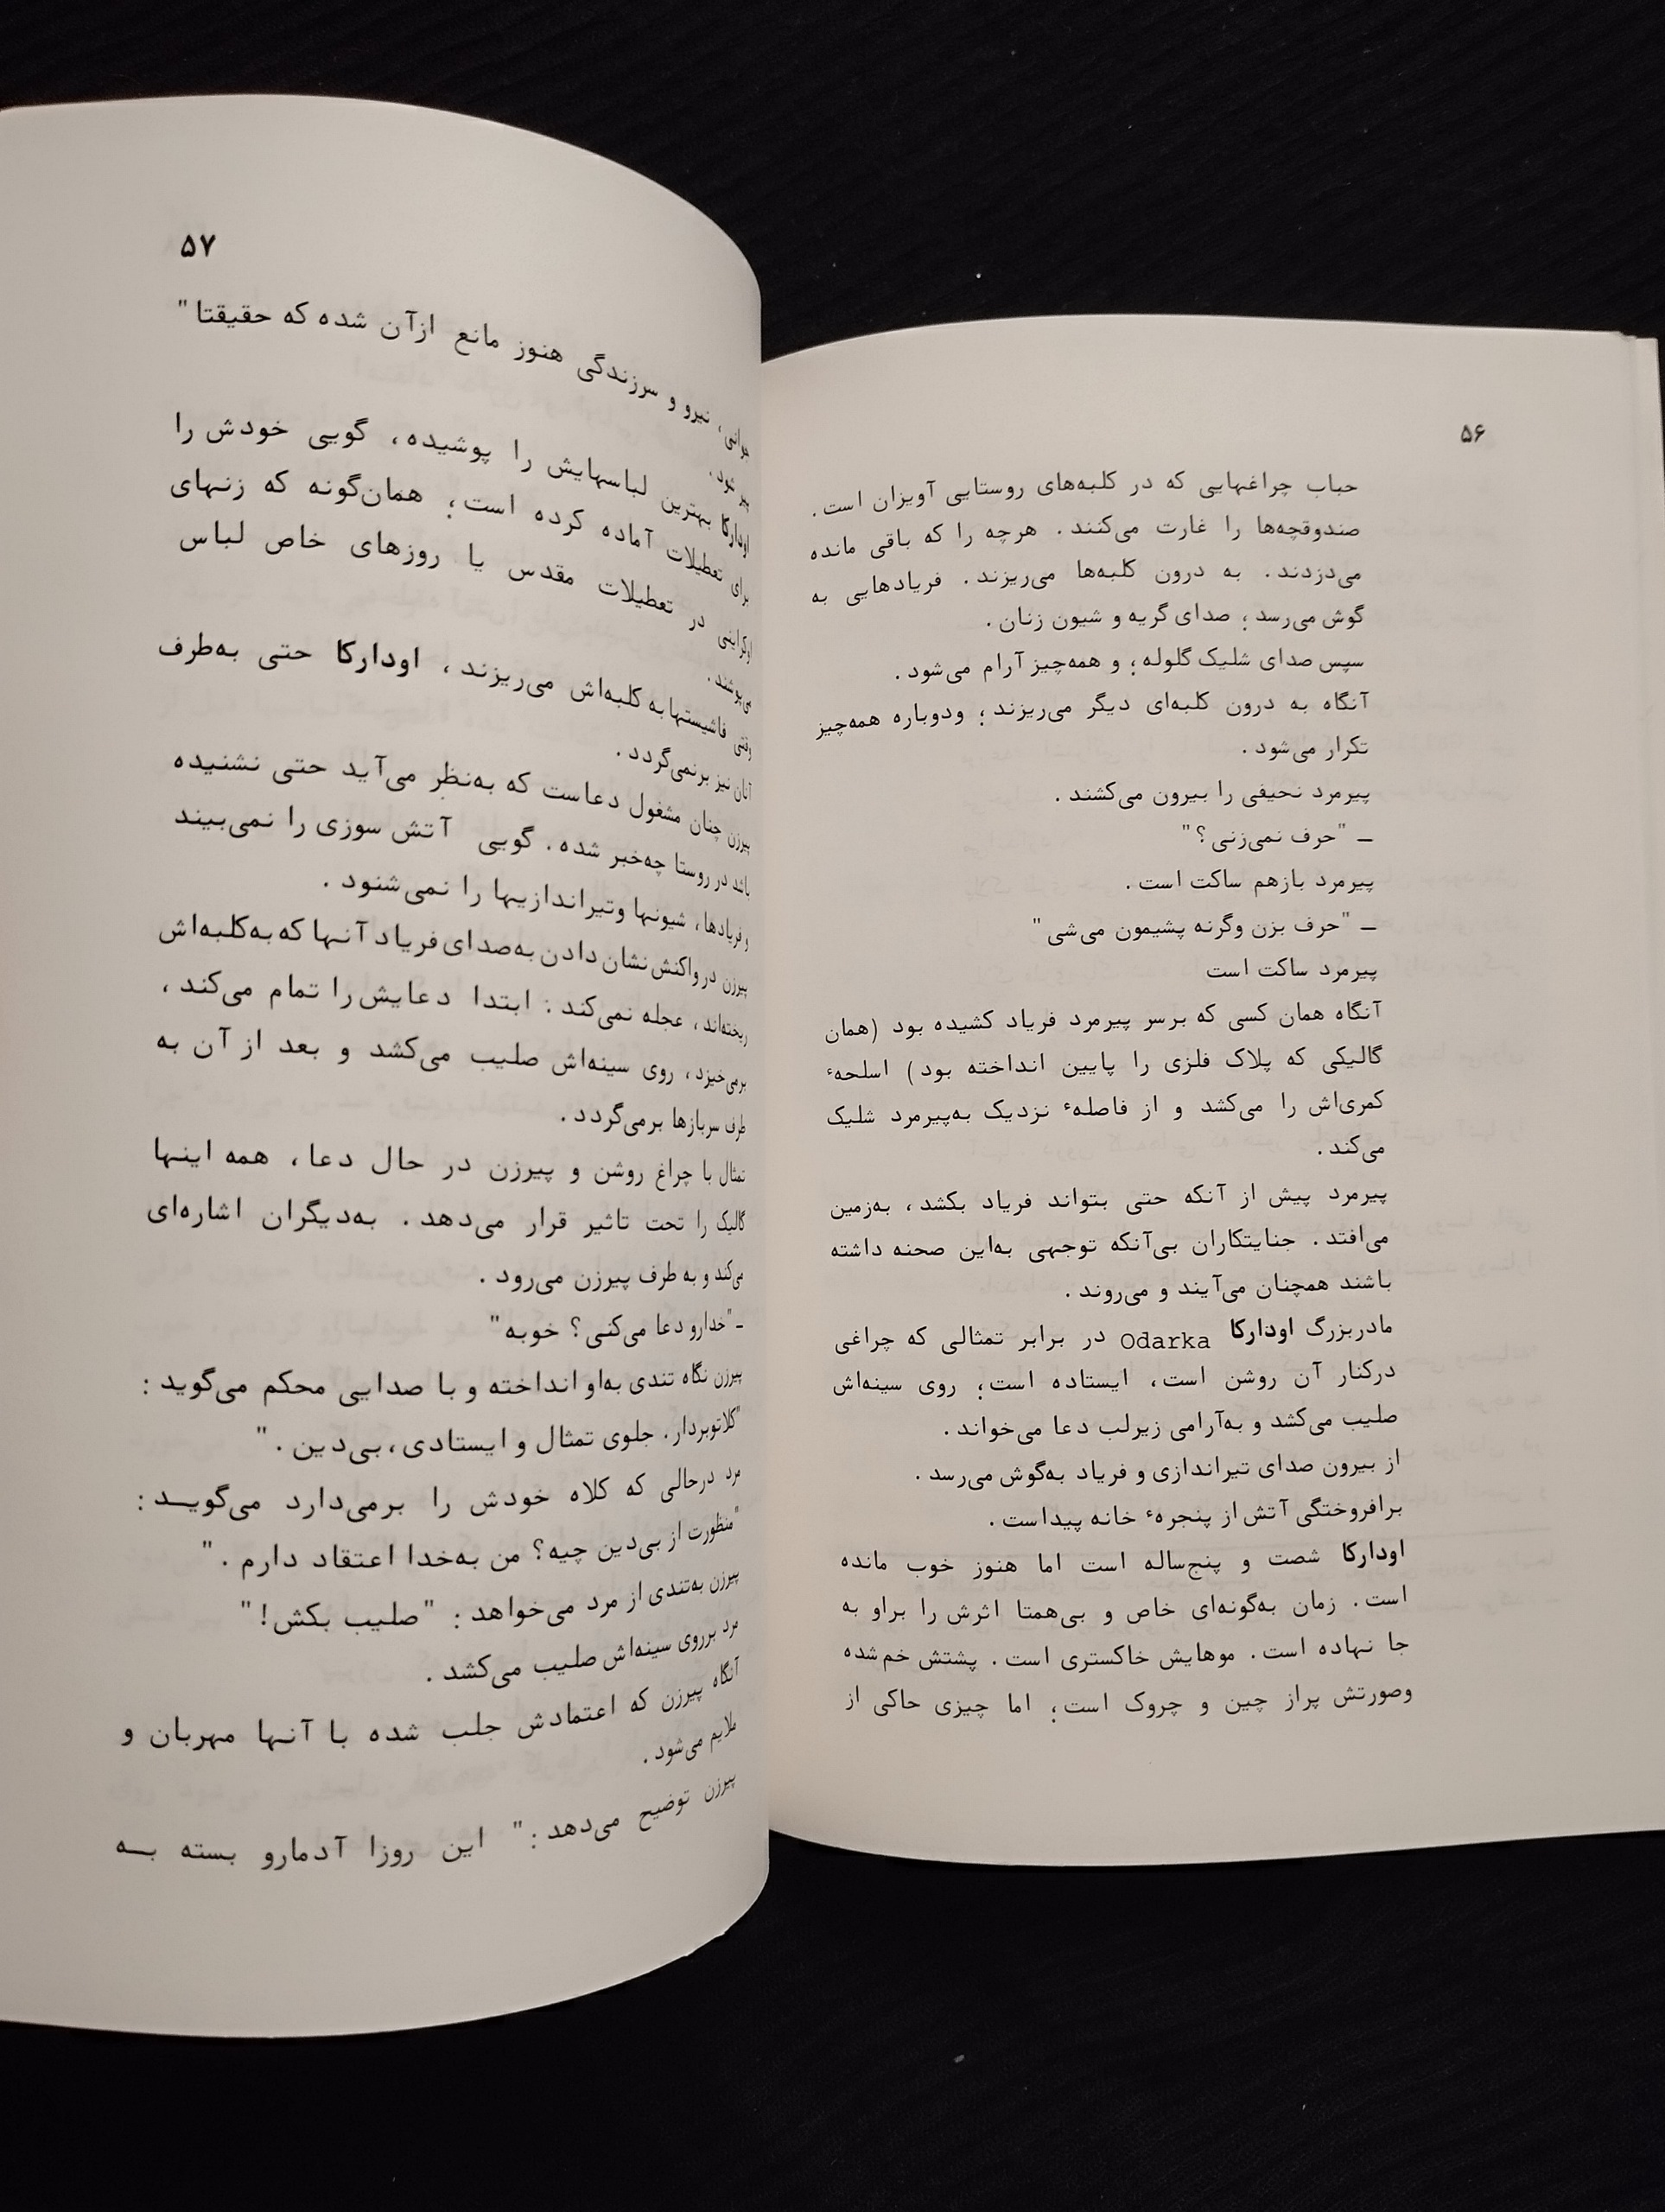 ۵۶
حباب چراغهایی که در کلبه‌های روستایی آویزان است.
صندوقچه‌ها را غارت می‌کنند. هرچه را که باقی مانده
می‌دزدند. به درون کلبه‌ها می‌ریزند. فریادهایی به
گوش می‌رسد؛ صدای گریه و شیون زنان.
سپس صدای شلیک گلوله؛ و همه‌چیز آرام می‌شود.
آنگاه به درون کلبه‌ای دیگر می‌ریزند؛ ودوباره همه‌چیز
تکرار می‌شود.
پیرمرد نحیفی را بیرون می‌کشند.
ـ "حرف نمی‌زنی؟"
پیرمرد بازهم ساکت است.
ـ "حرف بزن وگرنه پشیمون می‌شی"
پیرمرد ساکت است
آنگاه همان کسی که برسر پیرمرد فریاد کشیده بود (همان
گالیکی که پلاک فلزی را پایین انداخته بود) اسلحهٔ
کمری‌اش را می‌کشد و از فاصلهٔ نزدیک به‌پیرمرد شلیک
می‌کند.
پیرمرد پیش از آنکه حتی بتواند فریاد بکشد، به‌زمین
می‌افتد. جنایتکاران بی‌آنکه توجهی به‌این صحنه داشته
باشند همچنان می‌آیند و می‌روند.
مادربزرگ اودارکا Odarka در برابر تمثالی که چراغی
درکنار آن روشن است، ایستاده است؛ روی سینه‌اش
صلیب می‌کشد و به‌آرامی زیرلب دعا می‌خواند.
از بیرون صدای تیراندازی و فریاد به‌گوش می‌رسد.
برافروختگی آتش از پنجرهٔ خانه پیداست.
اودارکا شصت و پنج‌ساله است اما هنوز خوب مانده
است. زمان به‌گونه‌ای خاص و بی‌همتا اثرش را براو به
جا نهاده است. موهایش خاکستری است. پشتش خم‌شده
وصورتش پراز چین و چروک است؛ اما چیزی حاکی از
۵۷
جوانی، نیرو و سرزندگی هنوز مانع ازآن شده که حقیقتا"
پیر شود.
اودارکا بهترین لباسهایش را پوشیده، گویی خودش را
برای تعطیلات آماده کرده است؛ همان‌گونه که زنهای
اوکراینی در تعطیلات مقدس یا روزهای خاص لباس
می‌پوشند.
وقتی فاشیستهابه کلبه‌اش می‌ریزند، اودارکا حتی به‌طرف
آنان نیز برنمی‌گردد.
پیرزن چنان مشغول دعاست که به‌نظر می‌آید حتی نشنیده
باشد در روستا چه‌خبر شده. گویی آتش سوزی را نمی‌بیند
و فریادها، شیونها وتیراندازیها را نمی‌شنود.
پیرزن درواکنش نشان دادن به‌صدای فریاد آنها که به‌کلبه‌اش
ریخته‌اند، عجله نمی‌کند: ابتدا دعایش را تمام می‌کند،
برمی‌خیزد، روی سینه‌اش صلیب می‌کشد و بعد از آن به
طرف سربازها برمی‌گردد.
تمثال با چراغ روشن و پیرزن در حال دعا، همه اینها
گالیک را تحت تاثیر قرار می‌دهد. به‌دیگران اشاره‌ای
می‌کند و به طرف پیرزن می‌رود.
ـ "خدارو دعا می‌کنی؟ خوبه"
پیرزن نگاه تندی به‌او انداخته و با صدایی محکم می‌گوید:
"کلاتوبردار. جلوی تمثال وایستادی، بی‌دین."
مرد درحالی که کلاه خودش را برمی‌دارد می‌گویــد:
"منظورت از بی‌دین چیه؟ من به‌خدا اعتقاد دارم."
پیرزن به‌تندی از مرد می‌خواهد: "صلیب بکش!"
مرد برروی سینه‌اش صلیب می‌کشد.
آنگاه پیرزن که اعتمادش جلب شده با آنها مهربان و
ملایم می‌شود.
پیرزن توضیح می‌دهد:" این روزا آدمارو بسته بــه